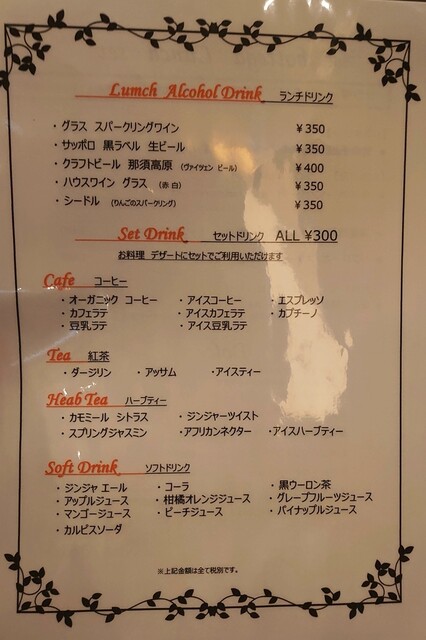 Lumch Alcohol Drink ランチドリンク
・グラス スパークリングワイン ￥350
・サッポロ 黒ラベル 生ビール ￥350
・クラフトビール 那須高原 (ヴァイツェン ビール) ￥400
・ハウスワイン グラス (赤 白) ￥350
・シードル (りんごのスパークリング) ￥350
Set Drink セットドリンク ALL ¥300
お料理 デザートにセットでご利用いただけます
Cafe コーヒー
・オーガニック コーヒー ・アイスコーヒー ・エスプレッソ
・カフェラテ ・アイスカフェラテ ・カプチーノ
・豆乳ラテ ・アイス豆乳ラテ
Tea 紅茶
・ダージリン ・アッサム ・アイスティー
Heab Tea ハーブティー
・カモミール シトラス ・ジンジャーツイスト
・スプリングジャスミン ・アフリカンネクター ・アイスハーブティー
Soft Drink ソフトドリンク
・ジンジャ エール ・コーラ ・黒ウーロン茶
・アップルジュース ・柑橘オレンジジュース ・グレープフルーツジュース
・マンゴージュース ・ピーチジュース ・パイナップルジュース
・カルピスソーダ
※上記金額は全て税別です。